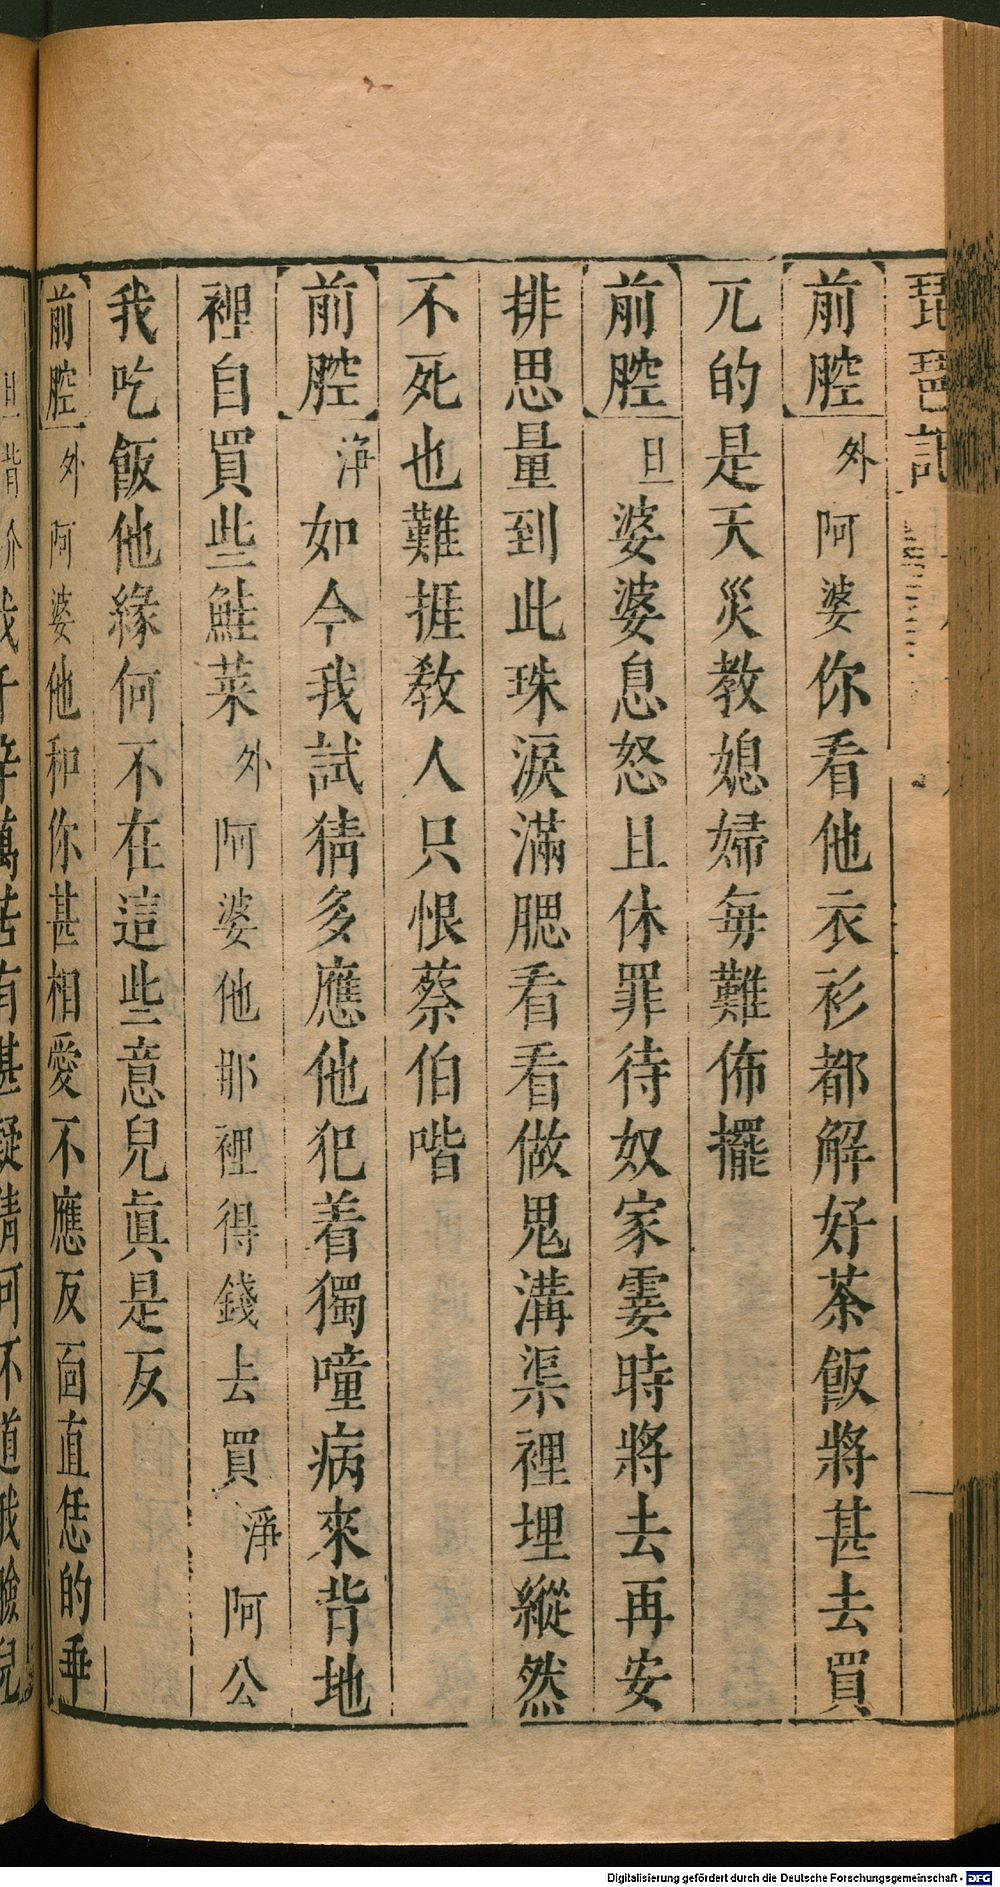 琵琶記
前腔 外 阿婆你看他衣衫都解好茶飯將甚去買
兀的是天災教媳婦每難佈擺
前腔 旦 婆婆息怒且休罪待奴家霎時將去再安
排思量到此珠淚滿腮看看做鬼溝渠裡埋縱然
不死也難捱教人只恨蔡伯喈
前腔 淨 如今我試猜多應他犯着獨噇病來背地
裡自買些鮭菜 外 阿婆他那裡得錢去買 淨 阿公
我吃飯他緣何不在這些意兒眞是歹
前腔 外 阿婆他和你甚相愛不應反面直恁的乖
旦背介 我千辛萬苦有甚疑猜可不道我臉兒
Digitalisierung gefördert durch die Deutsche Forschungsgemeinschaft - DFG